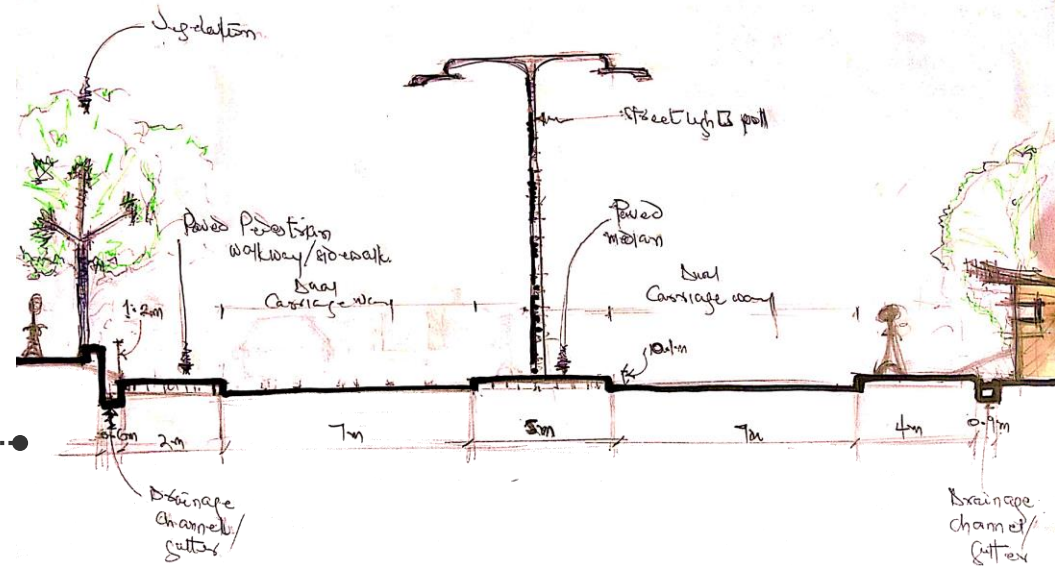 Vegetation
street light poll
Paved Pedestrian
walkway/sidewalk.
Paved
median
Dual
Carriage way
Dual
Carriage way
1.2m
0.1m
0.6m
2m
7m
5m
7m
4m
0.9m
Drainage
channel/
gutter
Drainage
channel/
gutter